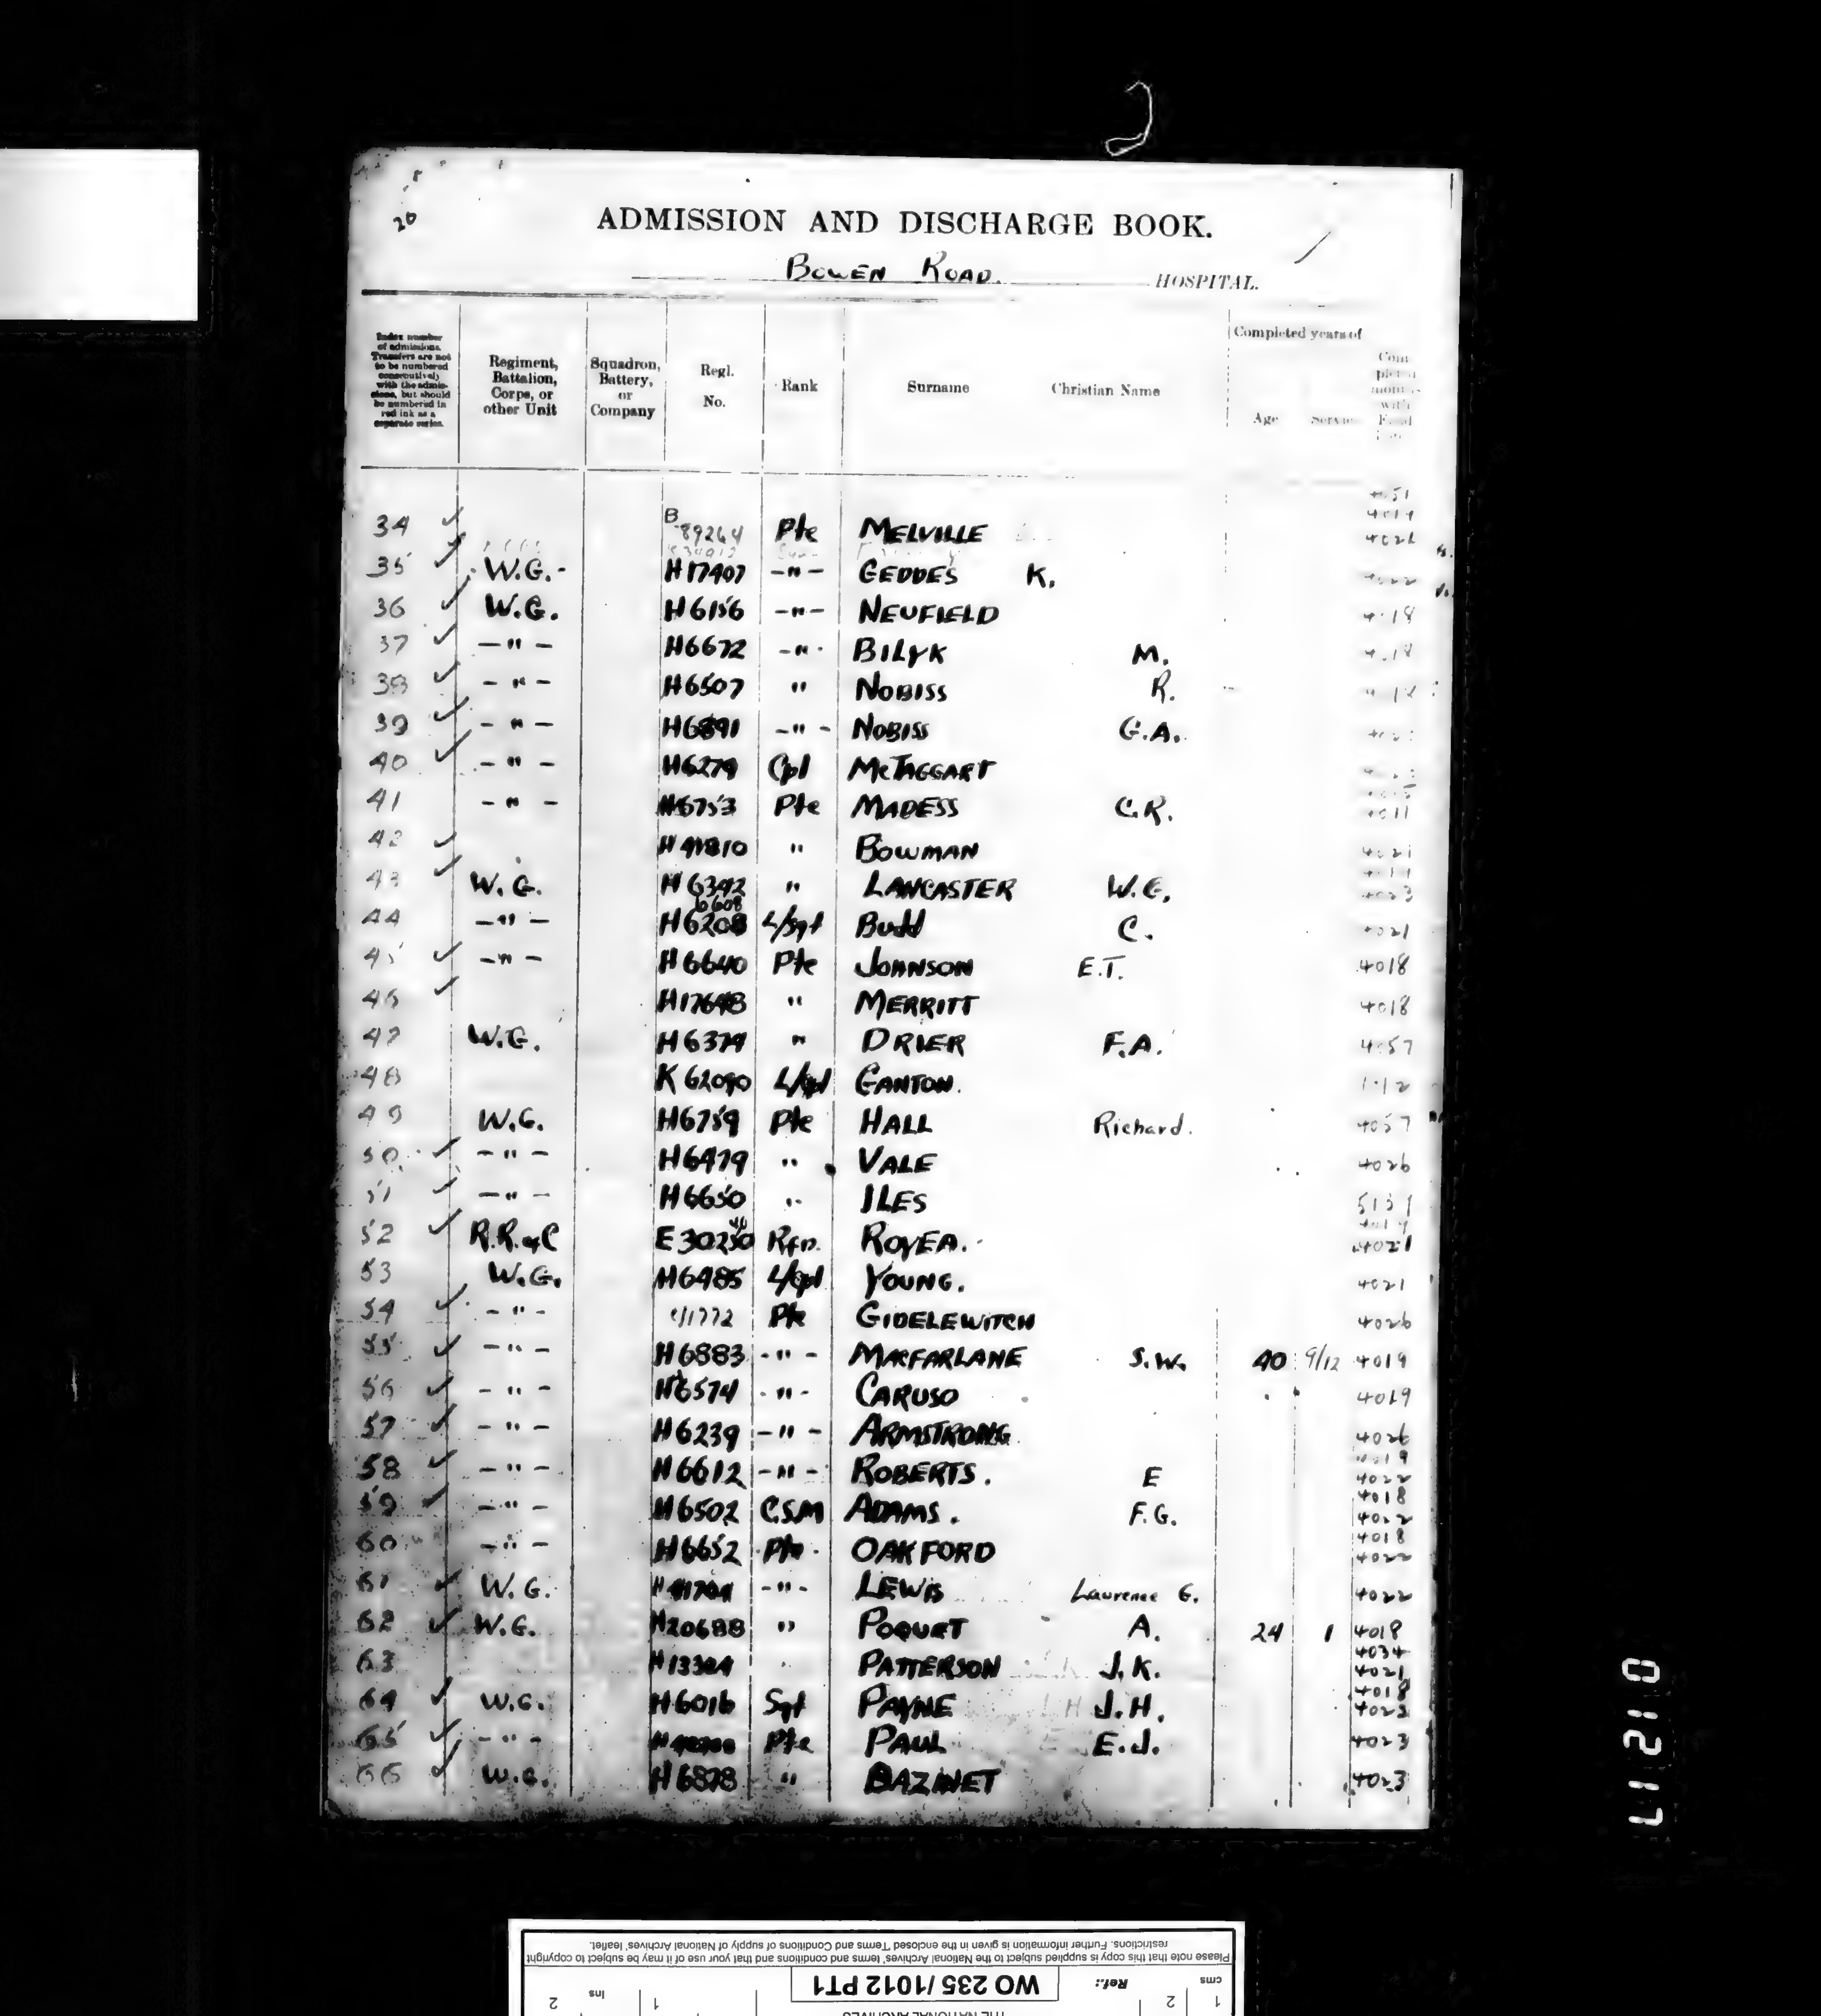 20
ADMISSION AND DISCHARGE BOOK.
BOWEN ROAD. HOSPITAL.
Index number of admissions. Transfers are not to be numbered consecutively with the admissions, but should be numbered in red ink as a separate series.
Regiment, Battalion, Corps, or other Unit
Squadron, Battery, or Company
Regl. No.
Rank
Surname
Christian Name
Completed years of
Age
Service
34 ✓ B 89264 Pte MELVILLE
35 ✓ W.G. H17407 -"- GEDDES K.
36 ✓ W.G. H6156 -"- NEUFIELD
37 ✓ -"- H6672 -"- BILYK M.
38 ✓ -"- H6507 " NOBISS R.
39 ✓ -"- H6891 -"- NOBISS G.A.
40 ✓ -"- H6279 Cpl McTAGGART
41 -"- H6753 Pte MADESS C.R.
42 ✓ " BOWMAN 4021
43 ✓ W.G. H6342 " LANCASTER W.G. 4023
44 -"- H6208 6608 L/Sgt Budd C. 4021
45 ✓ -"- H6640 Pte JOHNSON E.T. 4018
46 ✓ H17648 " MERRITT 4018
47 W.G. H6374 " DRIER F.A. 4057
48 K62090 L/Cpl GANTON.
49 W.G. H6759 Pte HALL Richard. 4057
50 ✓ -"- H6479 " VALE 4026
51 ✓ -"- H6650 " ILES
52 ✓ R.R. of C E30250 Rfn. ROYEA. 4021
53 W.G. H6485 L/Cpl YOUNG. 4021
54 ✓ -"- Pte GIDELEWITCH 4026
55 ✓ -"- H6883 -"- MACFARLANE S.W. 40 9/12 4019
56 ✓ -"- H6574 -"- CARUSO 4019
57 ✓ -"- H6239 -"- ARMSTRONG 4026
58 ✓ -"- H6612 -"- ROBERTS. E 4019 4022
59 ✓ -"- H6502 C.S.M ADAMS. F.G. 4018 4022
60 -"- H6652 Pte OAKFORD 4018 4022
61 ✓ W.G. -"- LEWIS Laurence G. 4022
62 ✓ W.G. H20688 " POQUET A. 24 1 4018
63 H13304 PATTERSON J.K. 4034 4021
64 ✓ W.G. H6016 Sgt PAYNE J.H. 4018 4023
65 ✓ -"- Pte PAUL E.J. 4023
66 ✓ W.G. H6878 " BAZINET 4023
01217
Please note that this copy is supplied subject to the National Archives' terms and conditions and that your use of it may be subject to copyright
restrictions. Further information is given in the enclosed 'Terms and Conditions of supply of National Archives' leaflet.
Ref.: WO 235/1012 PT1
cms 1 2
ins 1 2
THE NATIONAL ARCHIVES